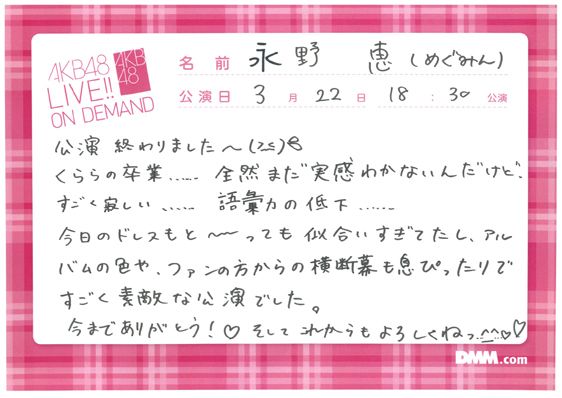 AKB48
LIVE!!
ON DEMAND
AKB
48
名前 永野 恵 (めぐみん)
公演日 3月 22日 18:30 公演
公演 終わりました〜(>_<)
くららの卒業…… 全然まだ実感わかないんだけど、
すごく寂しい…… 語彙力の低下……
今日のドレスもと〜〜っても似合いすぎてたし、アル
バムの色や、ファンの方からの横断幕も息ぴったりで
すごく素敵な公演でした。
今までありがとう!♡ そして これからもよろしくねっ^^♡♡
DMM.com